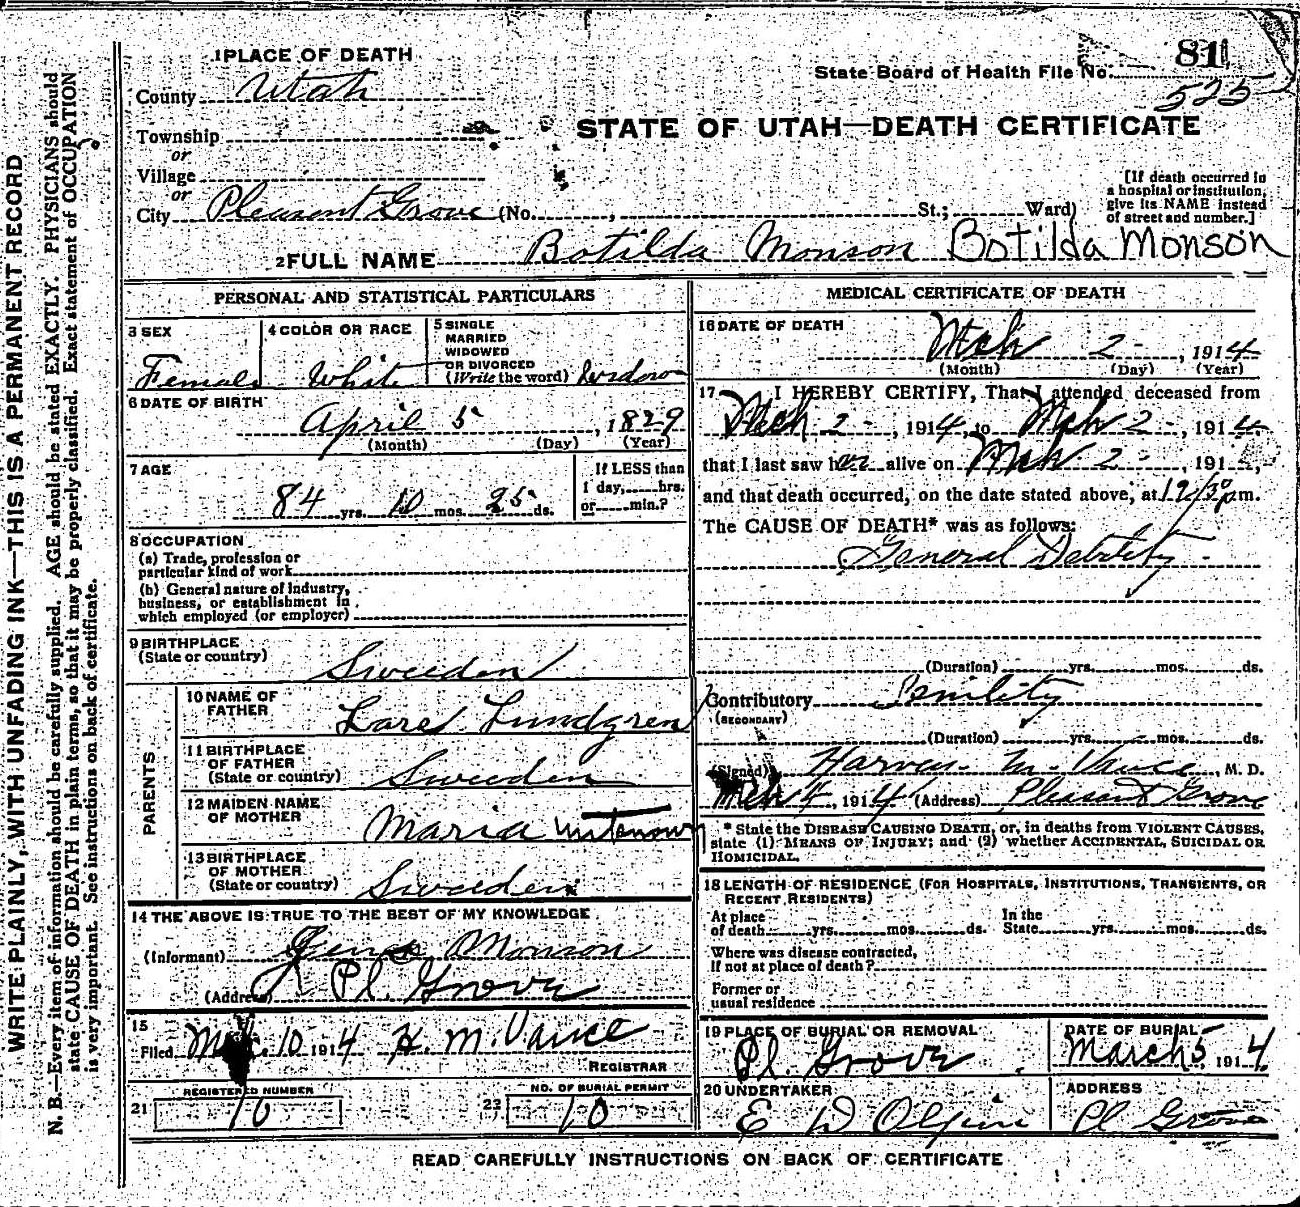 WRITE PLAINLY, WITH UNFADING INK—THIS IS A PERMANENT RECORD
N. B.—Every item of information should be carefully supplied. AGE should be stated EXACTLY. PHYSICIANS should
state CAUSE OF DEATH in plain terms, so that it may be properly classified. Exact statement of OCCUPATION
is very important. See instructions on back of certificate.
1 PLACE OF DEATH
County Utah
Township
or
Village
or
City Pleasant Grove (No. , St.; Ward)
81
State Board of Health File No.
525
STATE OF UTAH—DEATH CERTIFICATE
[If death occurred in
a hospital or institution,
give its NAME instead
of street and number.]
2 FULL NAME Botilda Monson Botilda Monson
PERSONAL AND STATISTICAL PARTICULARS
3 SEX
Female
4 COLOR OR RACE
White
5 SINGLE
MARRIED
WIDOWED
OR DIVORCED
(Write the word) Widow
6 DATE OF BIRTH
April 5 , 1829
(Month) (Day) (Year)
7 AGE
84 yrs. 10 mos. 25 ds.
If LESS than
1 day, hrs.
or min.?
8 OCCUPATION
(a) Trade, profession or
particular kind of work
(b) General nature of industry,
business, or establishment in
which employed (or employer)
9 BIRTHPLACE
(State or country)
Sweeden
PARENTS
10 NAME OF
FATHER
Lars Lundgren
11 BIRTHPLACE
OF FATHER
(State or country) Sweeden
12 MAIDEN NAME
OF MOTHER
Maria unknown
13 BIRTHPLACE
OF MOTHER
(State or country) Sweeden
14 THE ABOVE IS TRUE TO THE BEST OF MY KNOWLEDGE
(Informant) Monson
(Address) Pl. Grove
15
Filed 10 1914 H. M. Vance
REGISTRAR
REGISTERED NUMBER
21 10
NO. OF BURIAL PERMIT
22 10
MEDICAL CERTIFICATE OF DEATH
16 DATE OF DEATH
Mch 2 - , 1914
(Month) (Day) (Year)
17 I HEREBY CERTIFY, That I attended deceased from
Mch 2 - , 1914, to Mch 2 - , 1914
that I last saw her alive on Mch 2 - , 191
and that death occurred, on the date stated above, at 12/30 pm.
The CAUSE OF DEATH* was as follows:
General Debility
(Duration) yrs. mos. ds.
Contributory Senility
(SECONDARY)
(Duration) yrs. mos. ds.
(Signed) M. Vance, M. D.
Mch 4, 1914 (Address) Pleasant Grove
* State the DISEASE CAUSING DEATH, or, in deaths from VIOLENT CAUSES,
state (1) MEANS OF INJURY; and (2) whether ACCIDENTAL, SUICIDAL OR
HOMICIDAL.
18 LENGTH OF RESIDENCE (FOR HOSPITALS, INSTITUTIONS, TRANSIENTS, OR
RECENT RESIDENTS)
At place
of death yrs. mos. ds.
In the
State yrs. mos. ds.
Where was disease contracted,
if not at place of death?
Former or
usual residence
19 PLACE OF BURIAL OR REMOVAL
Pl. Grove
DATE OF BURIAL
March 5, 1914
20 UNDERTAKER
E D Olpin
ADDRESS
Pl Grove
READ CAREFULLY INSTRUCTIONS ON BACK OF CERTIFICATE